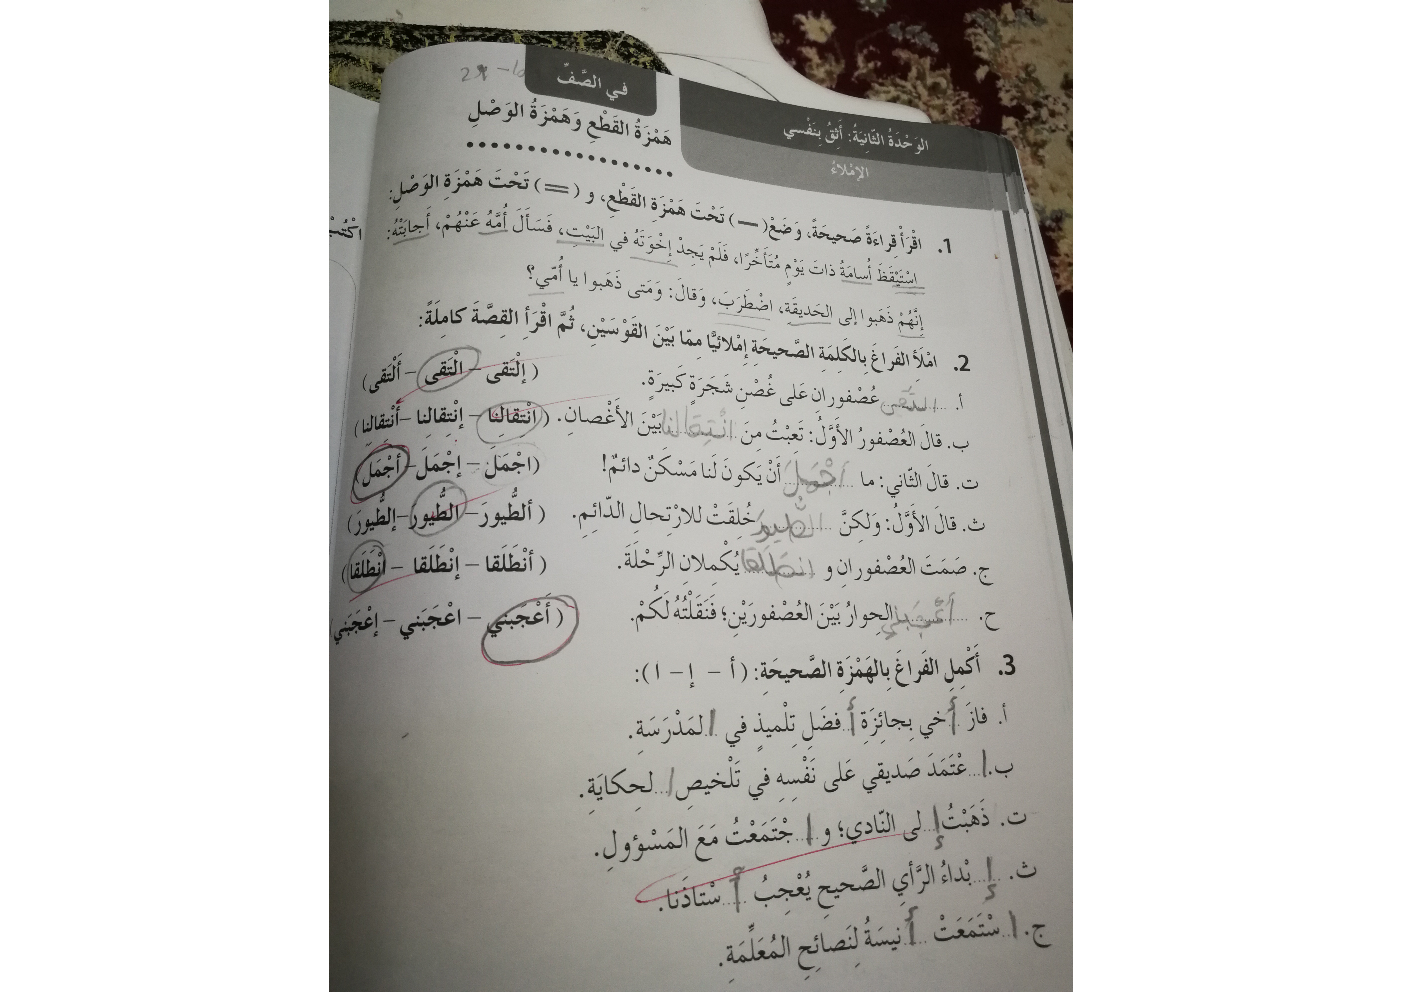 في الصَّفِّ
الوَحْدَةُ الثّانِيَةُ: أَثِقُ بِنَفْسي
الإمْلاءُ
هَمْزَةُ القَطْعِ وَهَمْزَةُ الوَصْلِ
1. اقْرَأْ قِراءَةً صَحيحَةً، وَضَعْ (—) تَحْتَ هَمْزَةِ القَطْعِ، و (=) تَحْتَ هَمْزَةِ الوَصْلِ:
اسْتَيْقَظَ أُسامَةُ ذاتَ يَوْمٍ مُتَأَخِّرًا، فَلَمْ يَجِدْ إِخْوَتَهُ في البَيْتِ، فَسَأَلَ أُمَّهُ عَنْهُمْ، أَجابَتْهُ:
إِنَّهُمْ ذَهَبوا إلى الحَديقَةِ، اضْطَرَبَ، وَقالَ: وَمَتى ذَهَبوا يا أُمّي؟
2. امْلَأِ الفَراغَ بِالكَلِمَةِ الصَّحيحَةِ إِمْلائِيًّا مِمّا بَيْنَ القَوْسَيْنِ، ثُمَّ اقْرَأِ القِصَّةَ كامِلَةً:
أ. التقى عُصْفورانِ عَلى غُصْنِ شَجَرَةٍ كَبيرَةٍ. (إلْتَقى – الْتَقى – أَلْتَقى)
ب. قالَ العُصْفورُ الأَوَّلُ: تَعِبْتُ مِنَ انْتِقالِنا بَيْنَ الأَغْصانِ. (انْتِقالِنا – إنْتِقالِنا – أَنْتِقالِنا)
ت. قالَ الثّاني: ما أَجْمَلَ أَنْ يَكونَ لَنا مَسْكَنٌ دائمٌ! (اجْمَلَ – إجْمَلَ – أَجْمَلَ)
ث. قالَ الأَوَّلُ: وَلكِنَّ الطُّيورَ خُلِقَتْ لِلارْتِحالِ الدّائِمِ. (ألطُّيورَ – الطُّيورَ – إلطُّيورَ)
ج. صَمَتَ العُصْفورانِ و انْطَلَقا يُكْمِلانِ الرِّحْلَةَ. (أنْطَلَقا – إنْطَلَقا – انْطَلَقا)
ح. أَعْجَبني الحِوارُ بَيْنَ العُصْفورَيْنِ؛ فَنَقَلْتُهُ لَكُمْ. (أَعْجَبَني – اعْجَبَني – إعْجَبَني)
3. أَكْمِلِ الفَراغَ بِالهَمْزَةِ الصَّحيحَةِ: (أ – إ – ا):
أ. فازَ أخي بِجائِزَةِ أفضَلِ تِلْميذٍ في المَدْرَسَةِ.
ب. اعْتَمَدَ صَديقي عَلى نَفْسِهِ في تَلْخيصِ الحِكايَةِ.
ت. ذَهَبْتُ إلى النّادي؛ و اجْتَمَعْتُ مَعَ المَسْؤولِ.
ث. إبْداءُ الرَّأيِ الصَّحيحِ يُعْجِبُ أسْتاذَنا.
ج. اسْتَمَعَتْ أنيسَةُ لِنَصائِحِ المُعَلِّمَةِ.